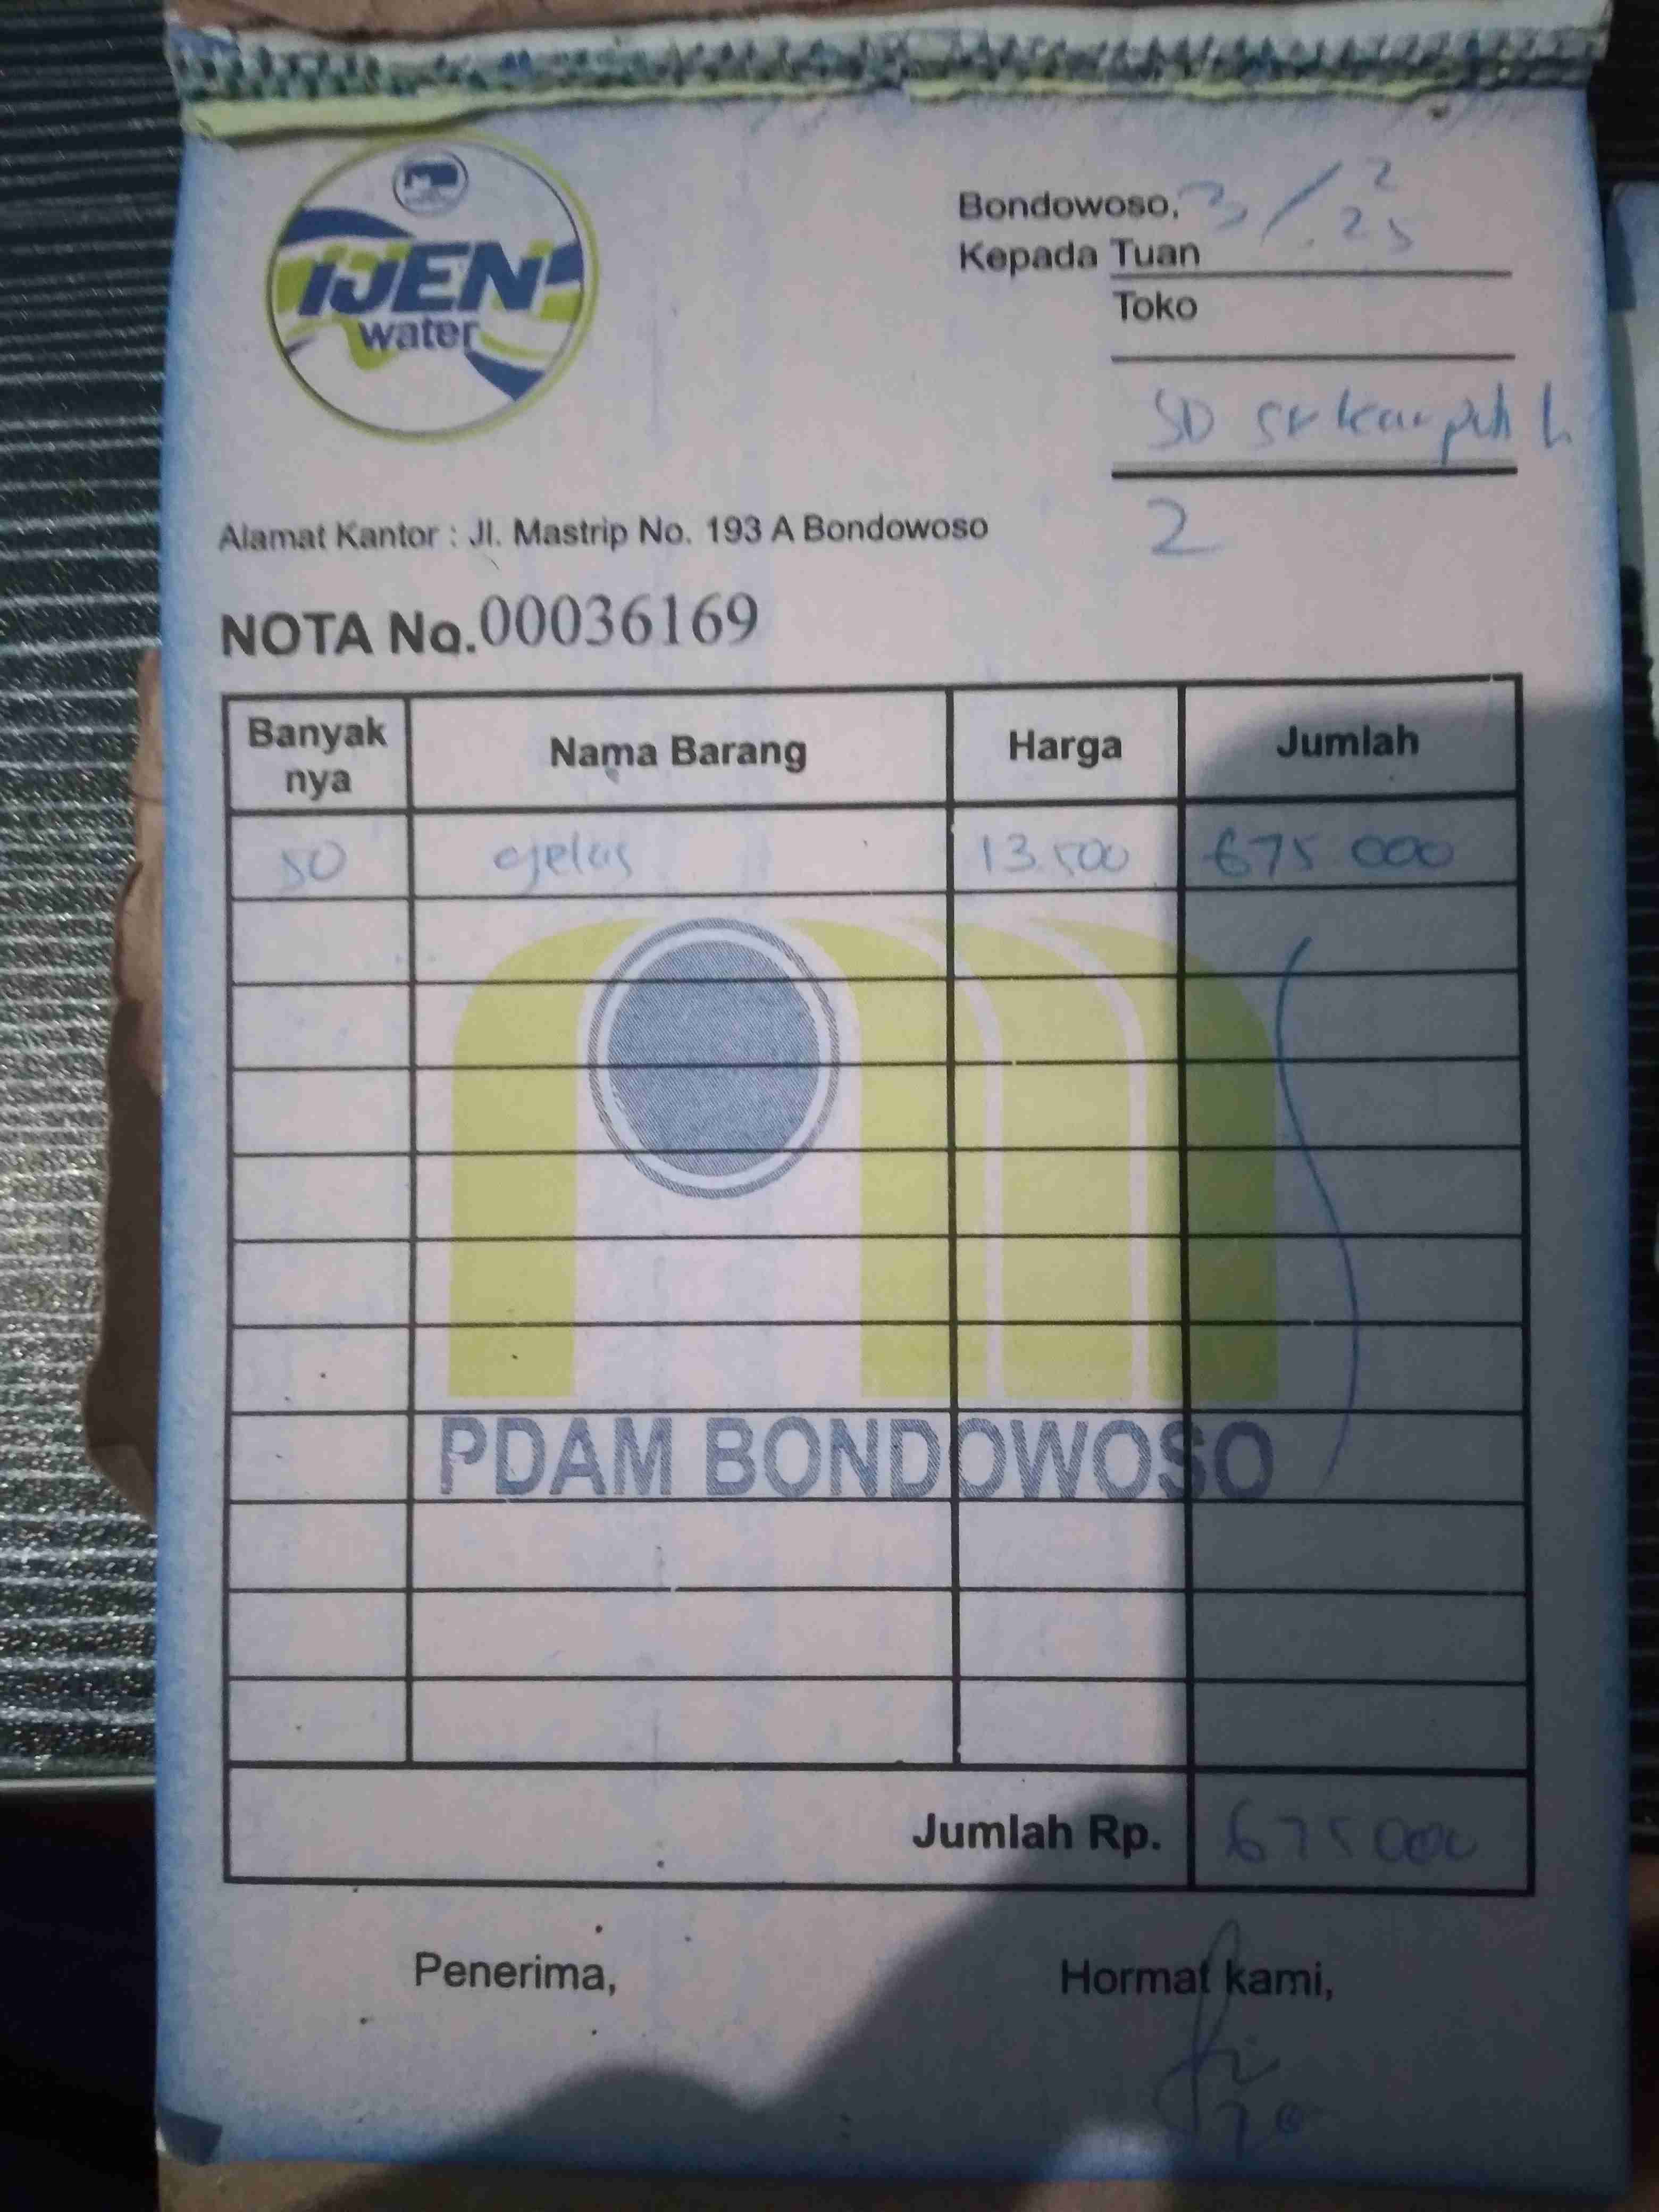 IJEN
water
Bondowoso, 3/2 25
Kepada Tuan
Toko
SD sukarpuh
2
Alamat Kantor : Jl. Mastrip No. 193 A Bondowoso
NOTA No. 00036169
Banyak nya Nama Barang Harga Jumlah
50 gelas 13.500 675 000
PDAM BONDOWOSO
Jumlah Rp. 675000
Penerima, Hormat kami,